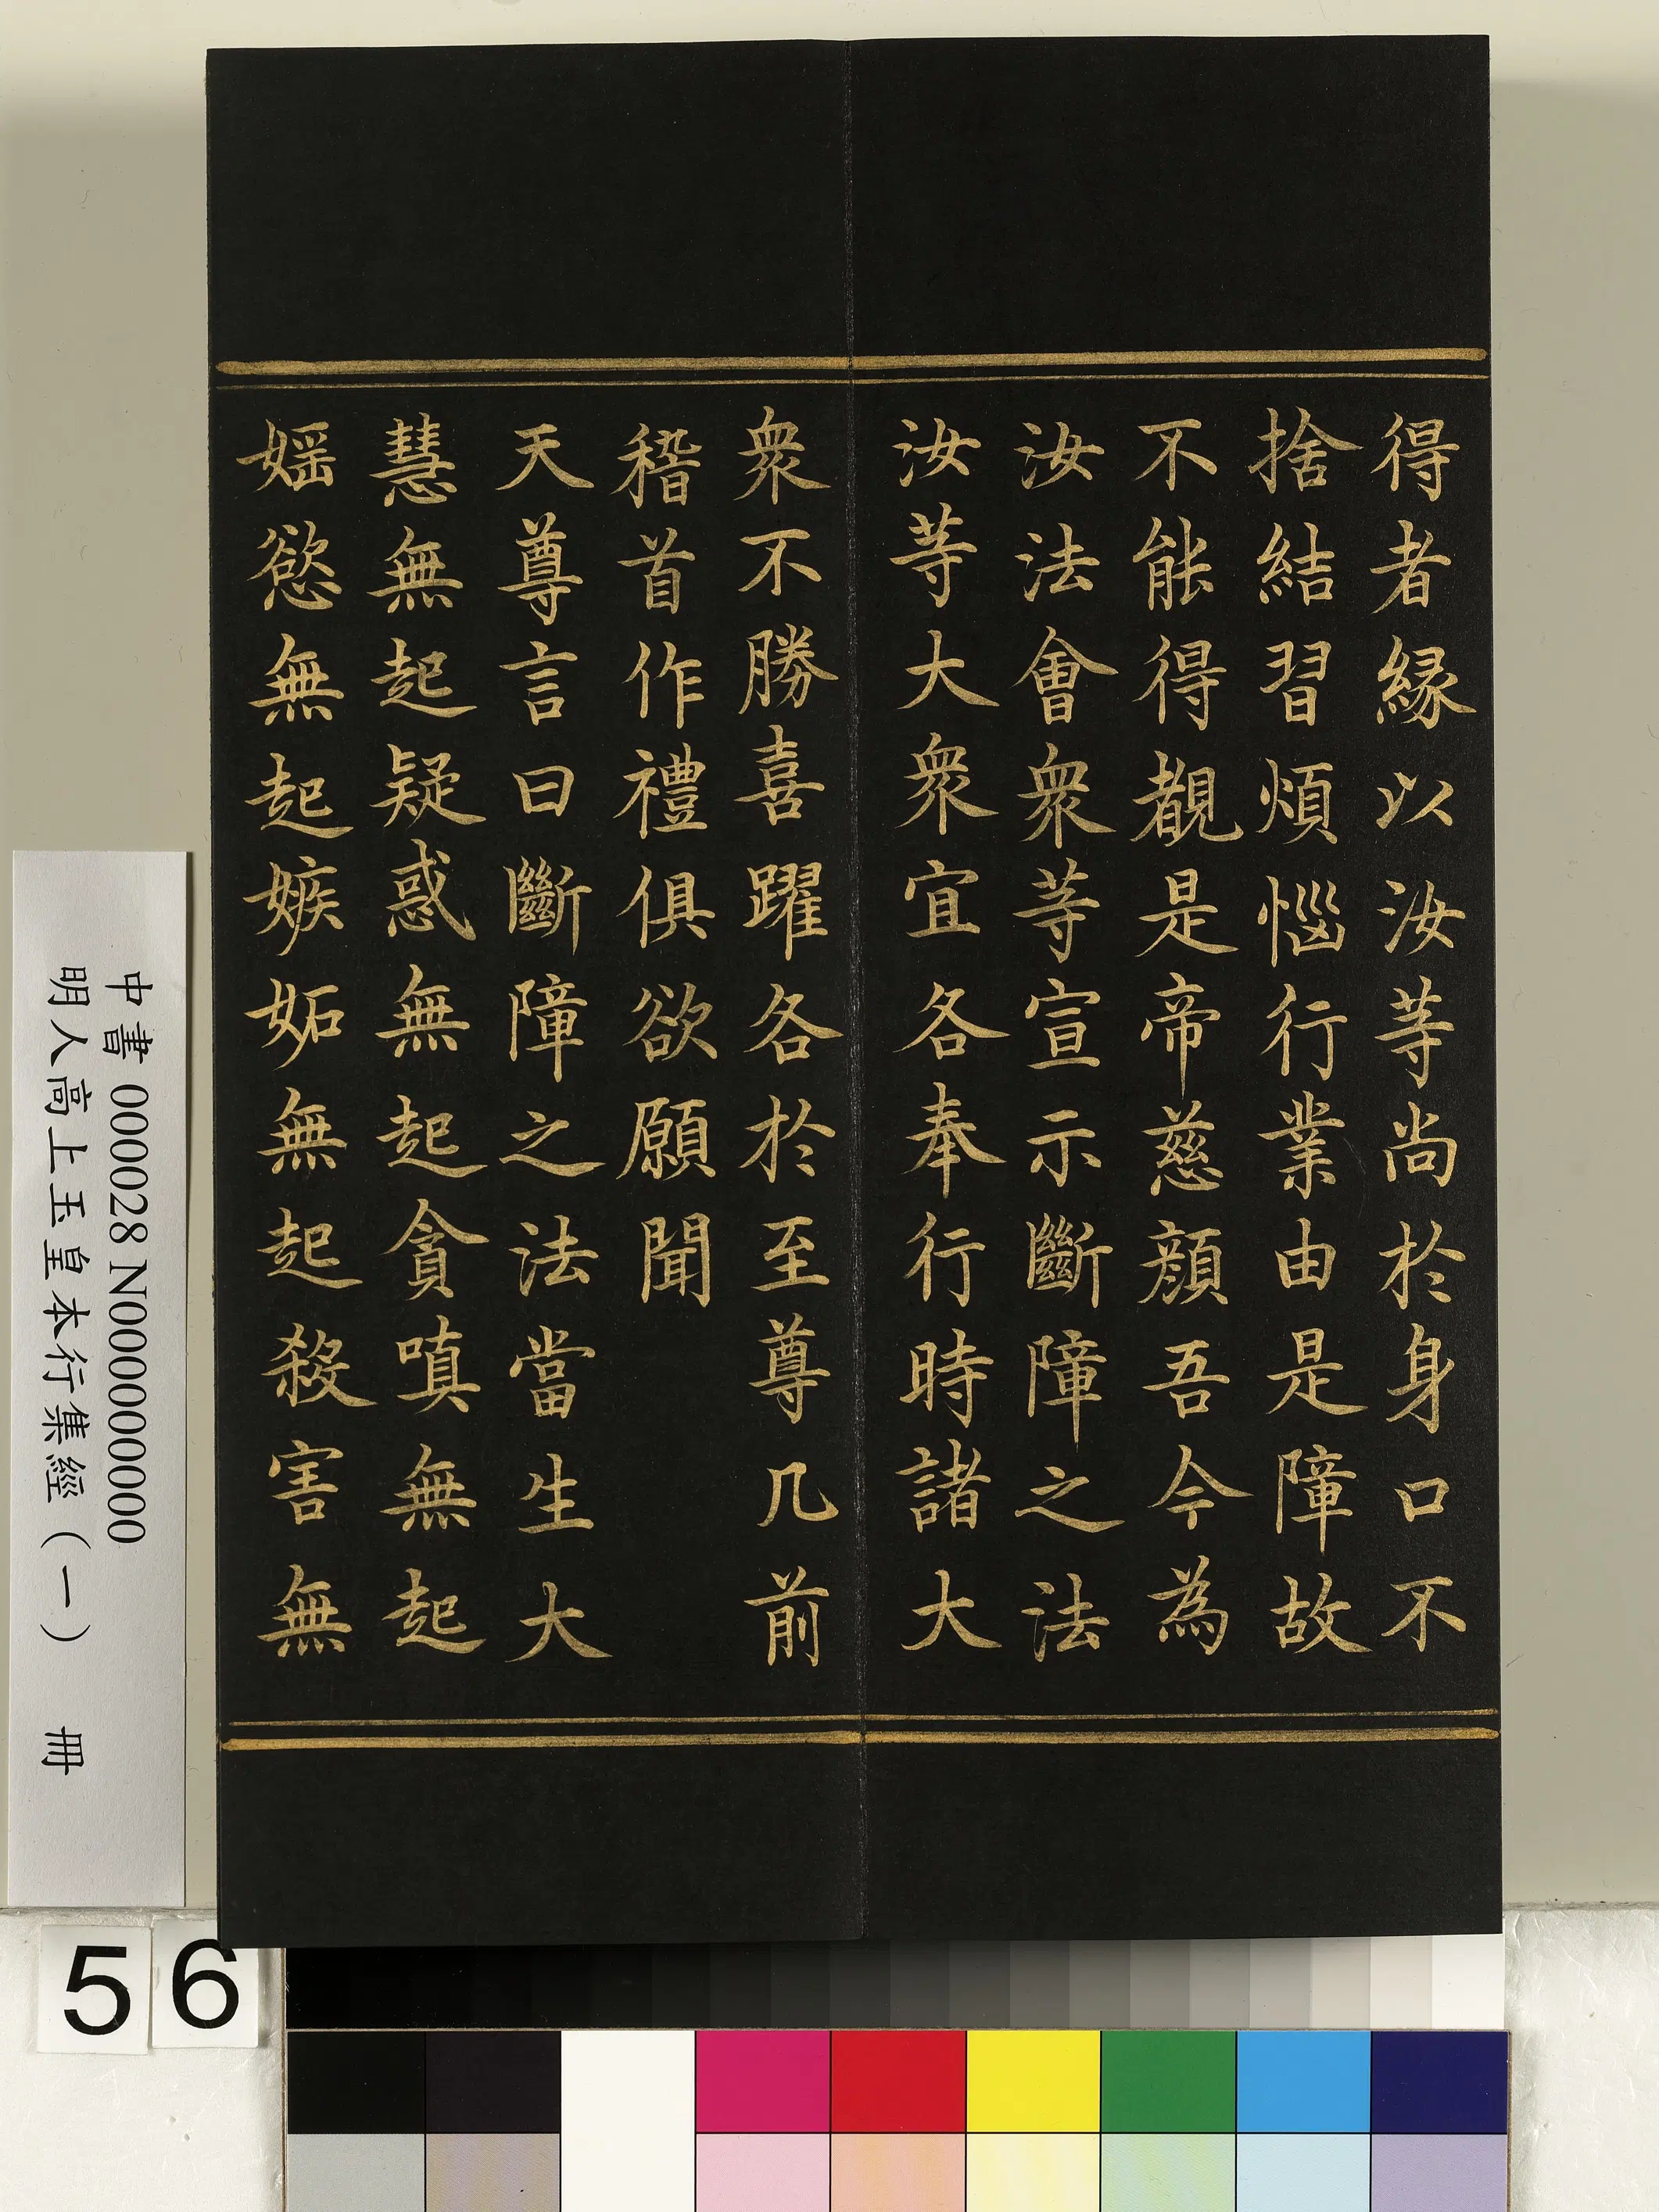 得者緣以汝等尚於身口不
捨結習煩惱行業由是障故
不能得覩是帝慈顏吾今為
汝法會衆等宣示斷障之法
汝等大衆宜各奉行時諸大
衆不勝喜躍各於至尊几前
稽首作禮俱欲願聞
天尊言曰斷障之法當生大
慧無起疑惑無起貪嗔無起
婬慾無起嫉妬無起殺害無
中書 000028 N000000000
明人高上玉皇本行集經（一） 冊
56